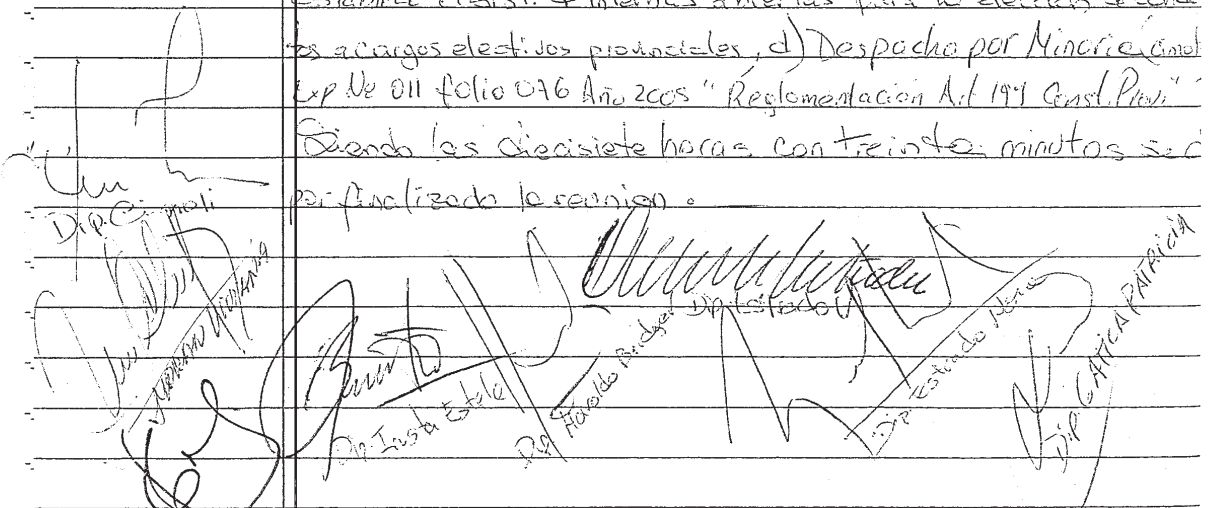 para la
es a cargos electivos provinciales, d) Despacho por Minoria
Exp Nº 011 folio 076 Año 2005 "Reglamentación Art 194 Const. Prov."
Siendo las diecisiete horas con treinta minutos se d
por finalizado la reunion.
Dip.
Dip. Iusta Estela
Dip. Haroldo Bridger
Dip. Estrado
Dip. Estrado Neria
Dip. GATICA PATRICIA